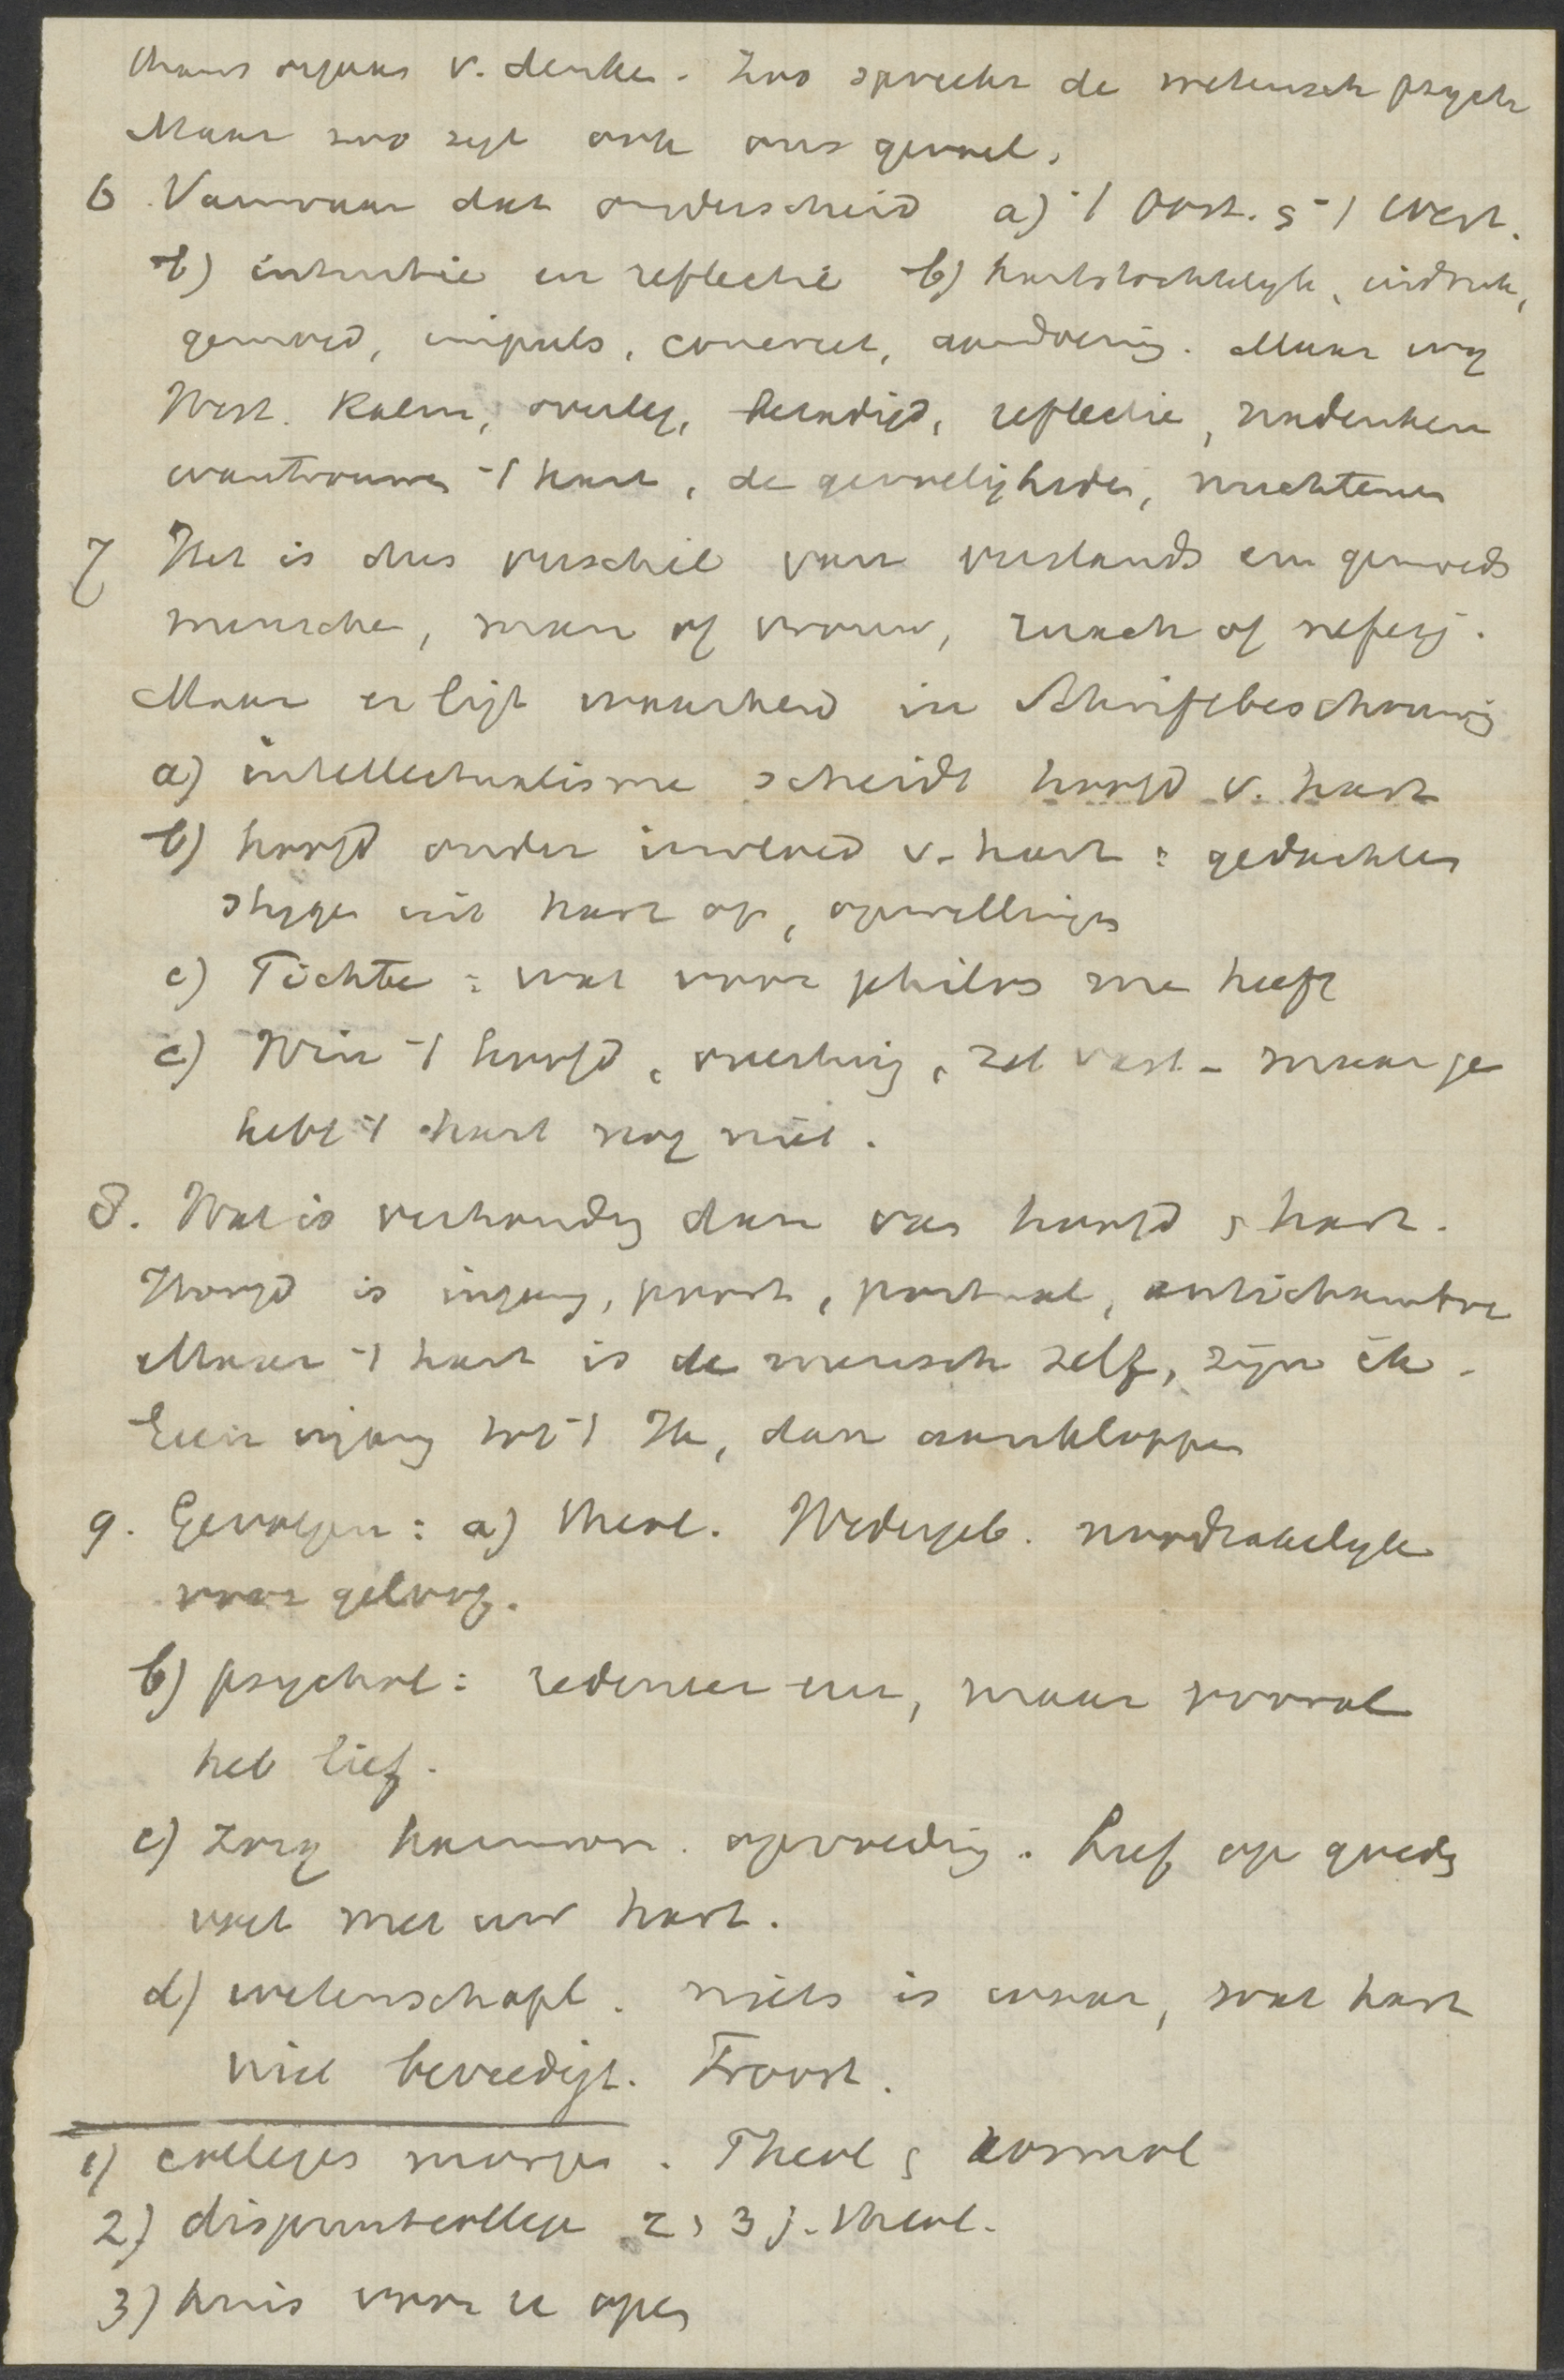 thans orgaan v. denken. Zoo spreekt de wetensch psych
Maar zoo zegt ook ons gevoel.
6 Vanwaar dat onderscheid a) 't Oost. & 't West.
b) intuitie en reflectie b) hartstochtelyk, indruk,
gemoed, impuls, concreet, aandoening. Maar wy
West. Kalm, overleg, beradigd, reflectie, nadenken
wantrouwen 't hart, de gevoeligheden, nuchteren
7 Het is dus verschil van verstands en gemoeds
menschen, man of vrouw, zwach of nefesj.
Maar er ligt waarheid in Schriftbeschouwing
a) intellectualisme scheidt hoofd v. hart
b) hoofd onder invloed v. hart: gedachten
stygen uit hart op, opwellingen
c) Fichte: wat voor philos me heeft
c) Win 't hoofd, overtuig, zet vast - maar ge
hebt 't hart nog niet.
8. Wat is verhouding dan van hoofd & hart.
Hoofd is ingang, poort, portaal, antichambre
Maar 't hart is de mensch zelf, zijn ik.
Een ingang tot 't Ik, dan aankloppen
9. Gevolgen: a) theol. Wedergeb. noodzakelyk
voor geloof.
b) psychol: redeneer en, maar vooral
heb lief.
c) Zorg harmon. opvoeding. Hef op goeds
vat met uw hart.
d) wetenschapl. niets is waar, wat hart
niet bevredigt. Troost.
1) colleges morgen. Theol & kosmol
2) dispuutcollege 2, 3 j. theol.
3) huis voor u open